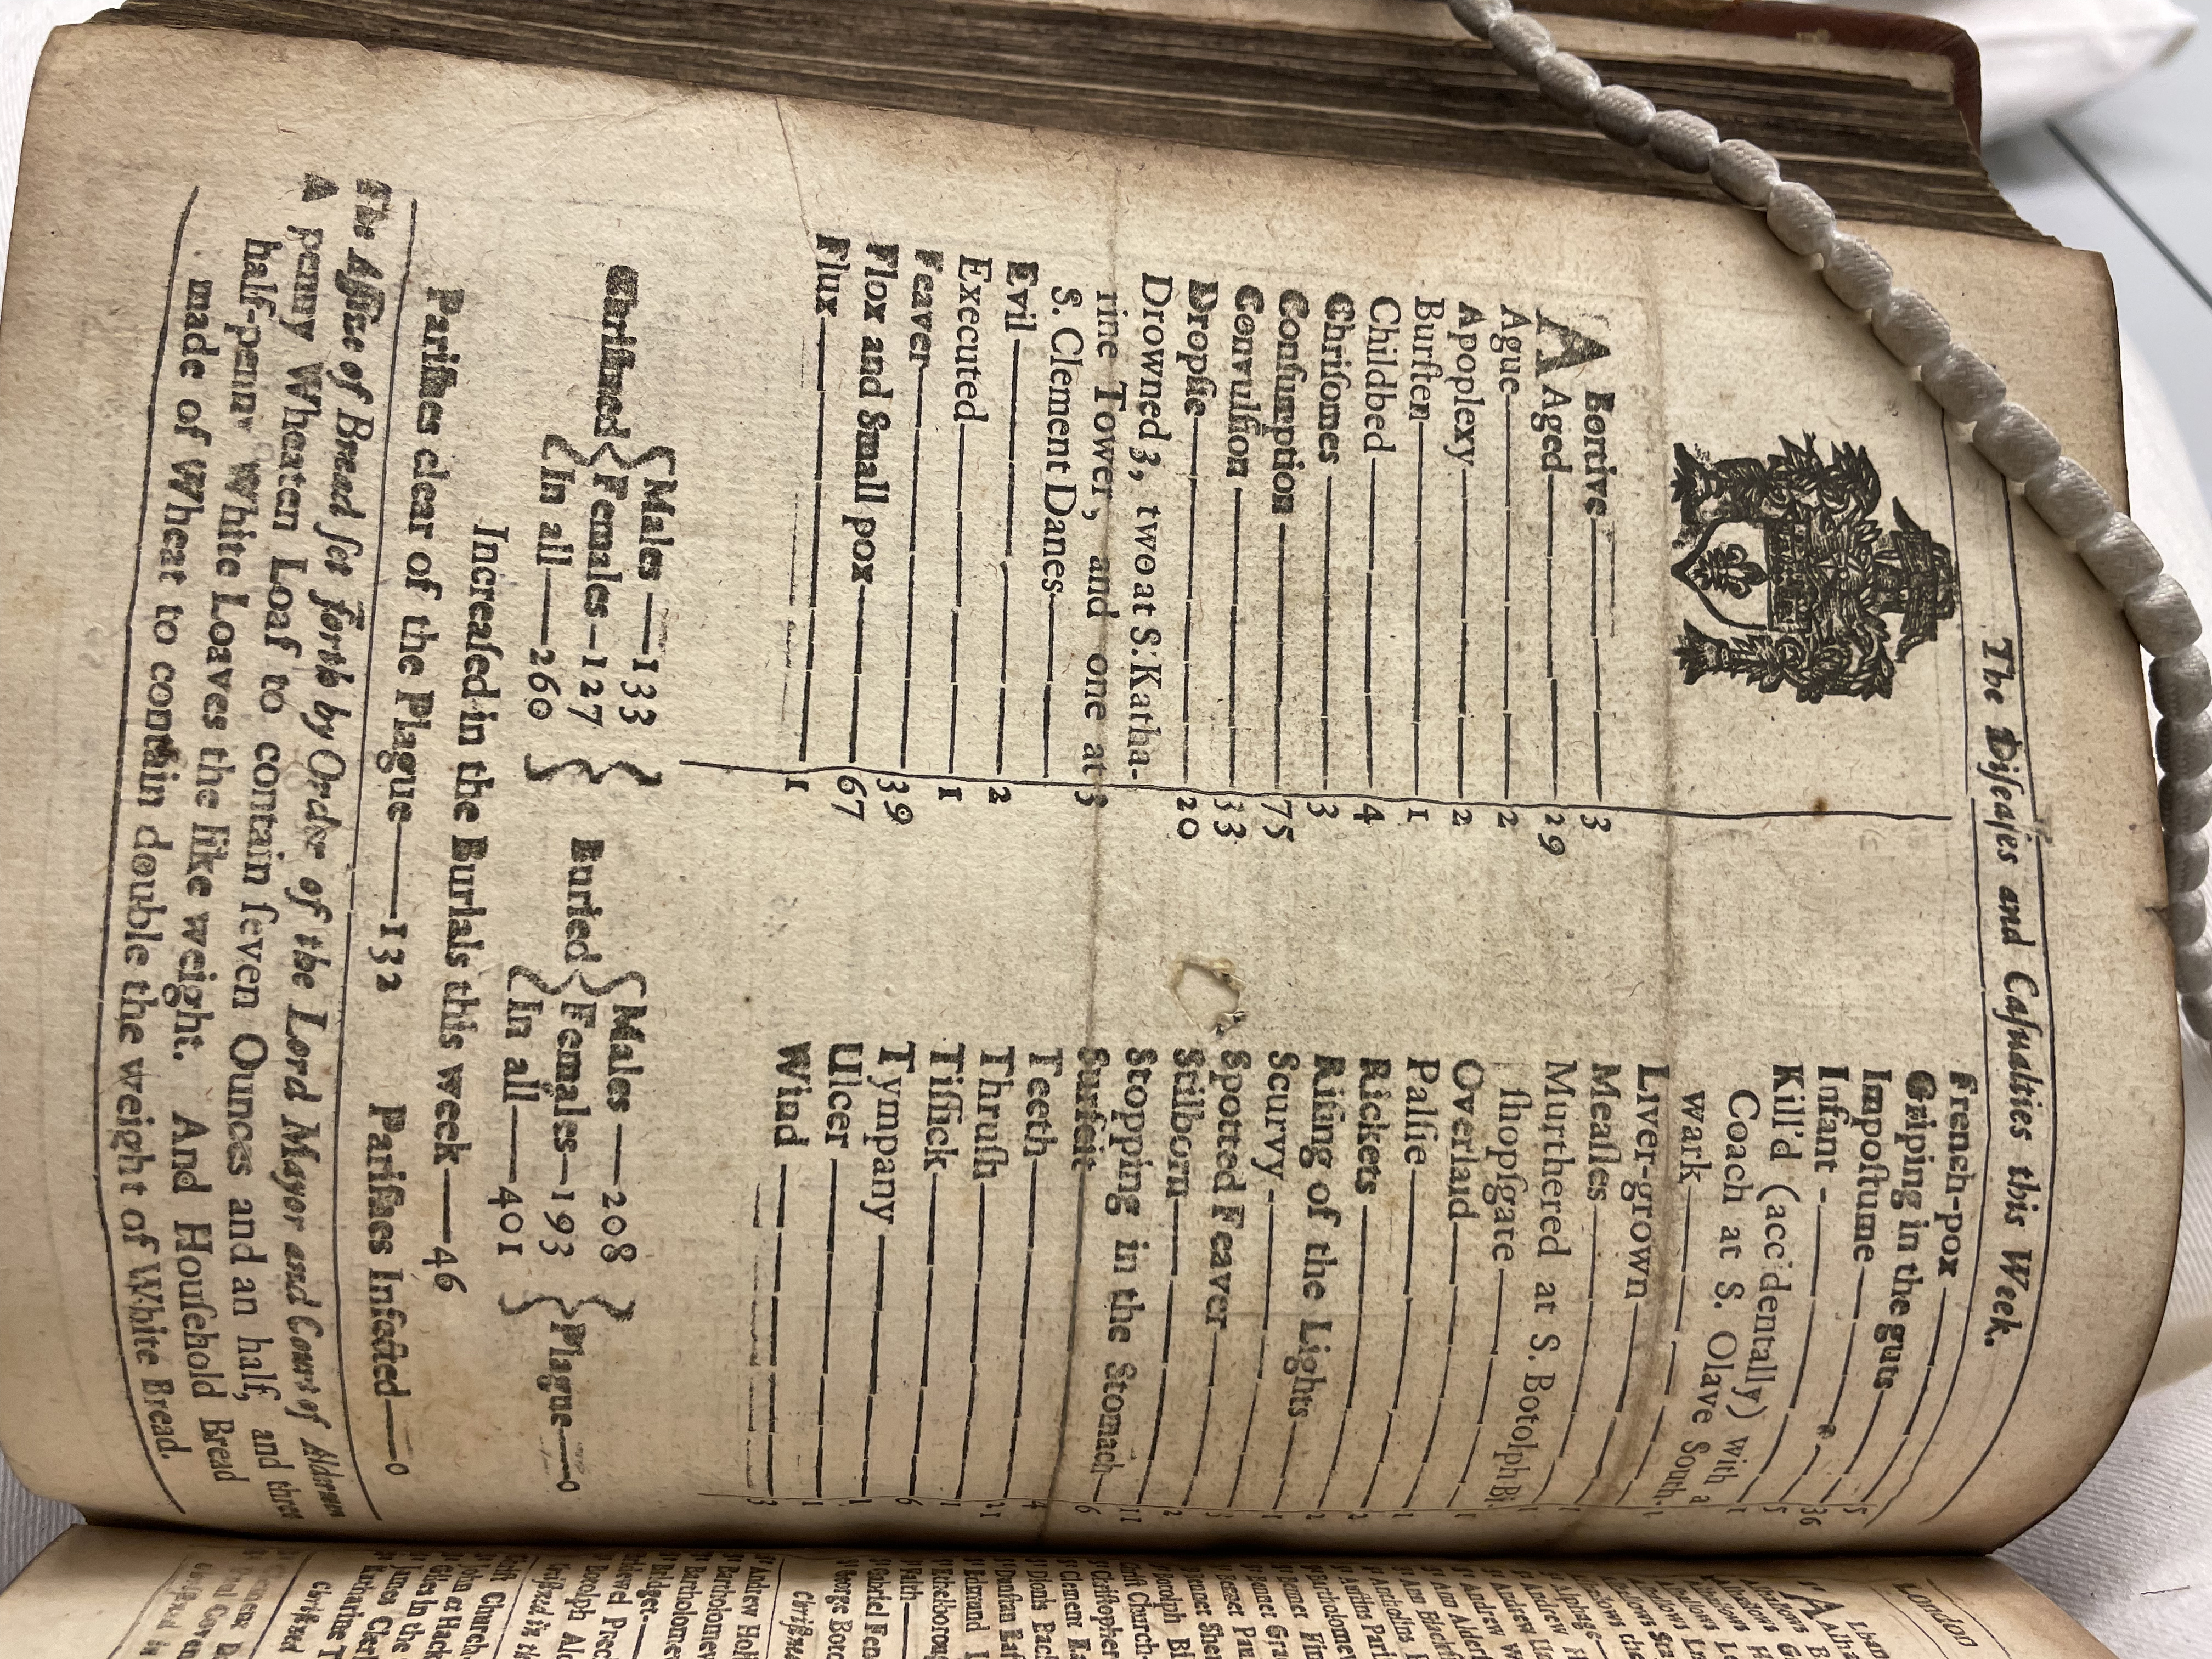 The Diseases and Casualties this Week.
ABortive — 3
Aged — 29
Ague — 2
Apoplexy — 2
Burſten — 1
Childbed — 4
Chriſomes — 3
Conſumption — 75
Convulſion — 33
Dropſie — 20
Drowned 3, two at S. Katha-
rine Tower, and one at
S. Clement Danes — 3
Evil — 2
Executed — 1
Feaver — 39
Flox and Small pox — 67
Flux — 1
French-pox — 5
Griping in the guts — 36
Impoſtume — 5
Infant — 1
Kill'd (accidentally) with a
Coach at S. Olave South-
wark — 1
Liver-grown — 1
Meaſles — 1
Murthered at S. Botolph Bi-
ſhopſgate — 1
Overlaid — 1
Palſie — 2
Rickets — 2
Riſing of the Lights — 1
Scurvy — 3
Spotted Feaver — 2
Stilborn — 11
Stopping in the Stomach — 6
Surfeit — 4
Teeth — 21
Thruſh — 1
Tiſſick — 6
Tympany — 1
Ulcer — 1
Wind — 3
Chriſtned { Males — 133 Females — 127 In all — 260 }
Buried { Males — 208 Females — 193 In all — 401 } Plague — 0
Increaſed in the Burials this week — 46
Pariſhes clear of the Plague — 132 Pariſhes Infected — 0
The Aſſize of Bread ſet forth by Order of the Lord Mayor and Court of Aldermen
A penny Wheaten Loaf to contain ſeven Ounces and an half, and three
half-penny White Loaves the like weight. And Houſehold Bread
made of Wheat to contain double the weight of White Bread.
London